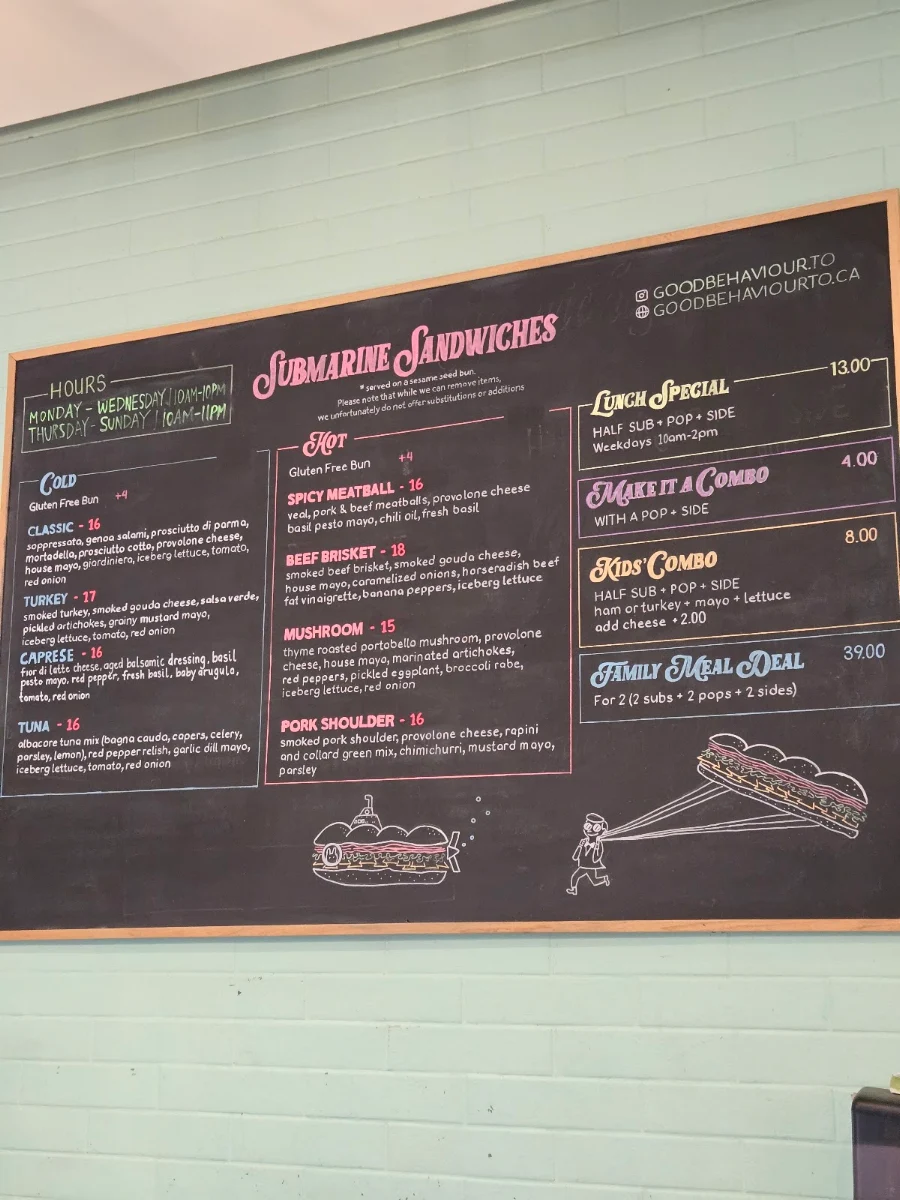 GOODBEHAVIOUR.TO
GOODBEHAVIOURTO.CA
SUBMARINE SANDWICHES
* served on a sesame seed bun.
Please note that while we can remove items,
we unfortunately do not offer substitutions or additions
HOURS
MONDAY - WEDNESDAY | 10AM-10PM
THURSDAY - SUNDAY | 10AM-11PM
COLD
Gluten Free Bun +4
CLASSIC - 16
soppressata, genoa salami, prosciutto di parma,
mortadella, prosciutto cotto, provolone cheese,
house mayo, giardiniera, iceberg lettuce, tomato,
red onion
TURKEY - 17
smoked turkey, smoked gouda cheese, salsa verde,
pickled artichokes, grainy mustard mayo,
iceberg lettuce, tomato, red onion
CAPRESE - 16
fior di latte cheese, aged balsamic dressing, basil
pesto mayo, red pepper, fresh basil, baby arugula,
tomato, red onion
TUNA - 16
albacore tuna mix (bagna cauda, capers, celery,
parsley, lemon), red pepper relish, garlic dill mayo,
iceberg lettuce, tomato, red onion
HOT
Gluten Free Bun +4
SPICY MEATBALL - 16
veal, pork & beef meatballs, provolone cheese
basil pesto mayo, chili oil, fresh basil
BEEF BRISKET - 18
smoked beef brisket, smoked gouda cheese,
house mayo, caramelized onions, horseradish beef
fat vinaigrette, banana peppers, iceberg lettuce
MUSHROOM - 15
thyme roasted portobello mushroom, provolone
cheese, house mayo, marinated artichokes,
red peppers, pickled eggplant, broccoli rabe,
iceberg lettuce, red onion
PORK SHOULDER - 16
smoked pork shoulder, provolone cheese, rapini
and collard green mix, chimichurri, mustard mayo,
parsley
LUNCH SPECIAL 13.00
HALF SUB + POP + SIDE
Weekdays 10am-2pm
MAKE IT A COMBO 4.00
WITH A POP + SIDE
KIDS' COMBO 8.00
HALF SUB + POP + SIDE
ham or turkey + mayo + lettuce
add cheese +2.00
FAMILY MEAL DEAL 39.00
For 2 (2 subs + 2 pops + 2 sides)